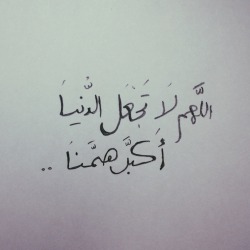 اللَّهم لَا تَجْعَل الدُّنيَا
أَكبَرَ همَّنَا ..